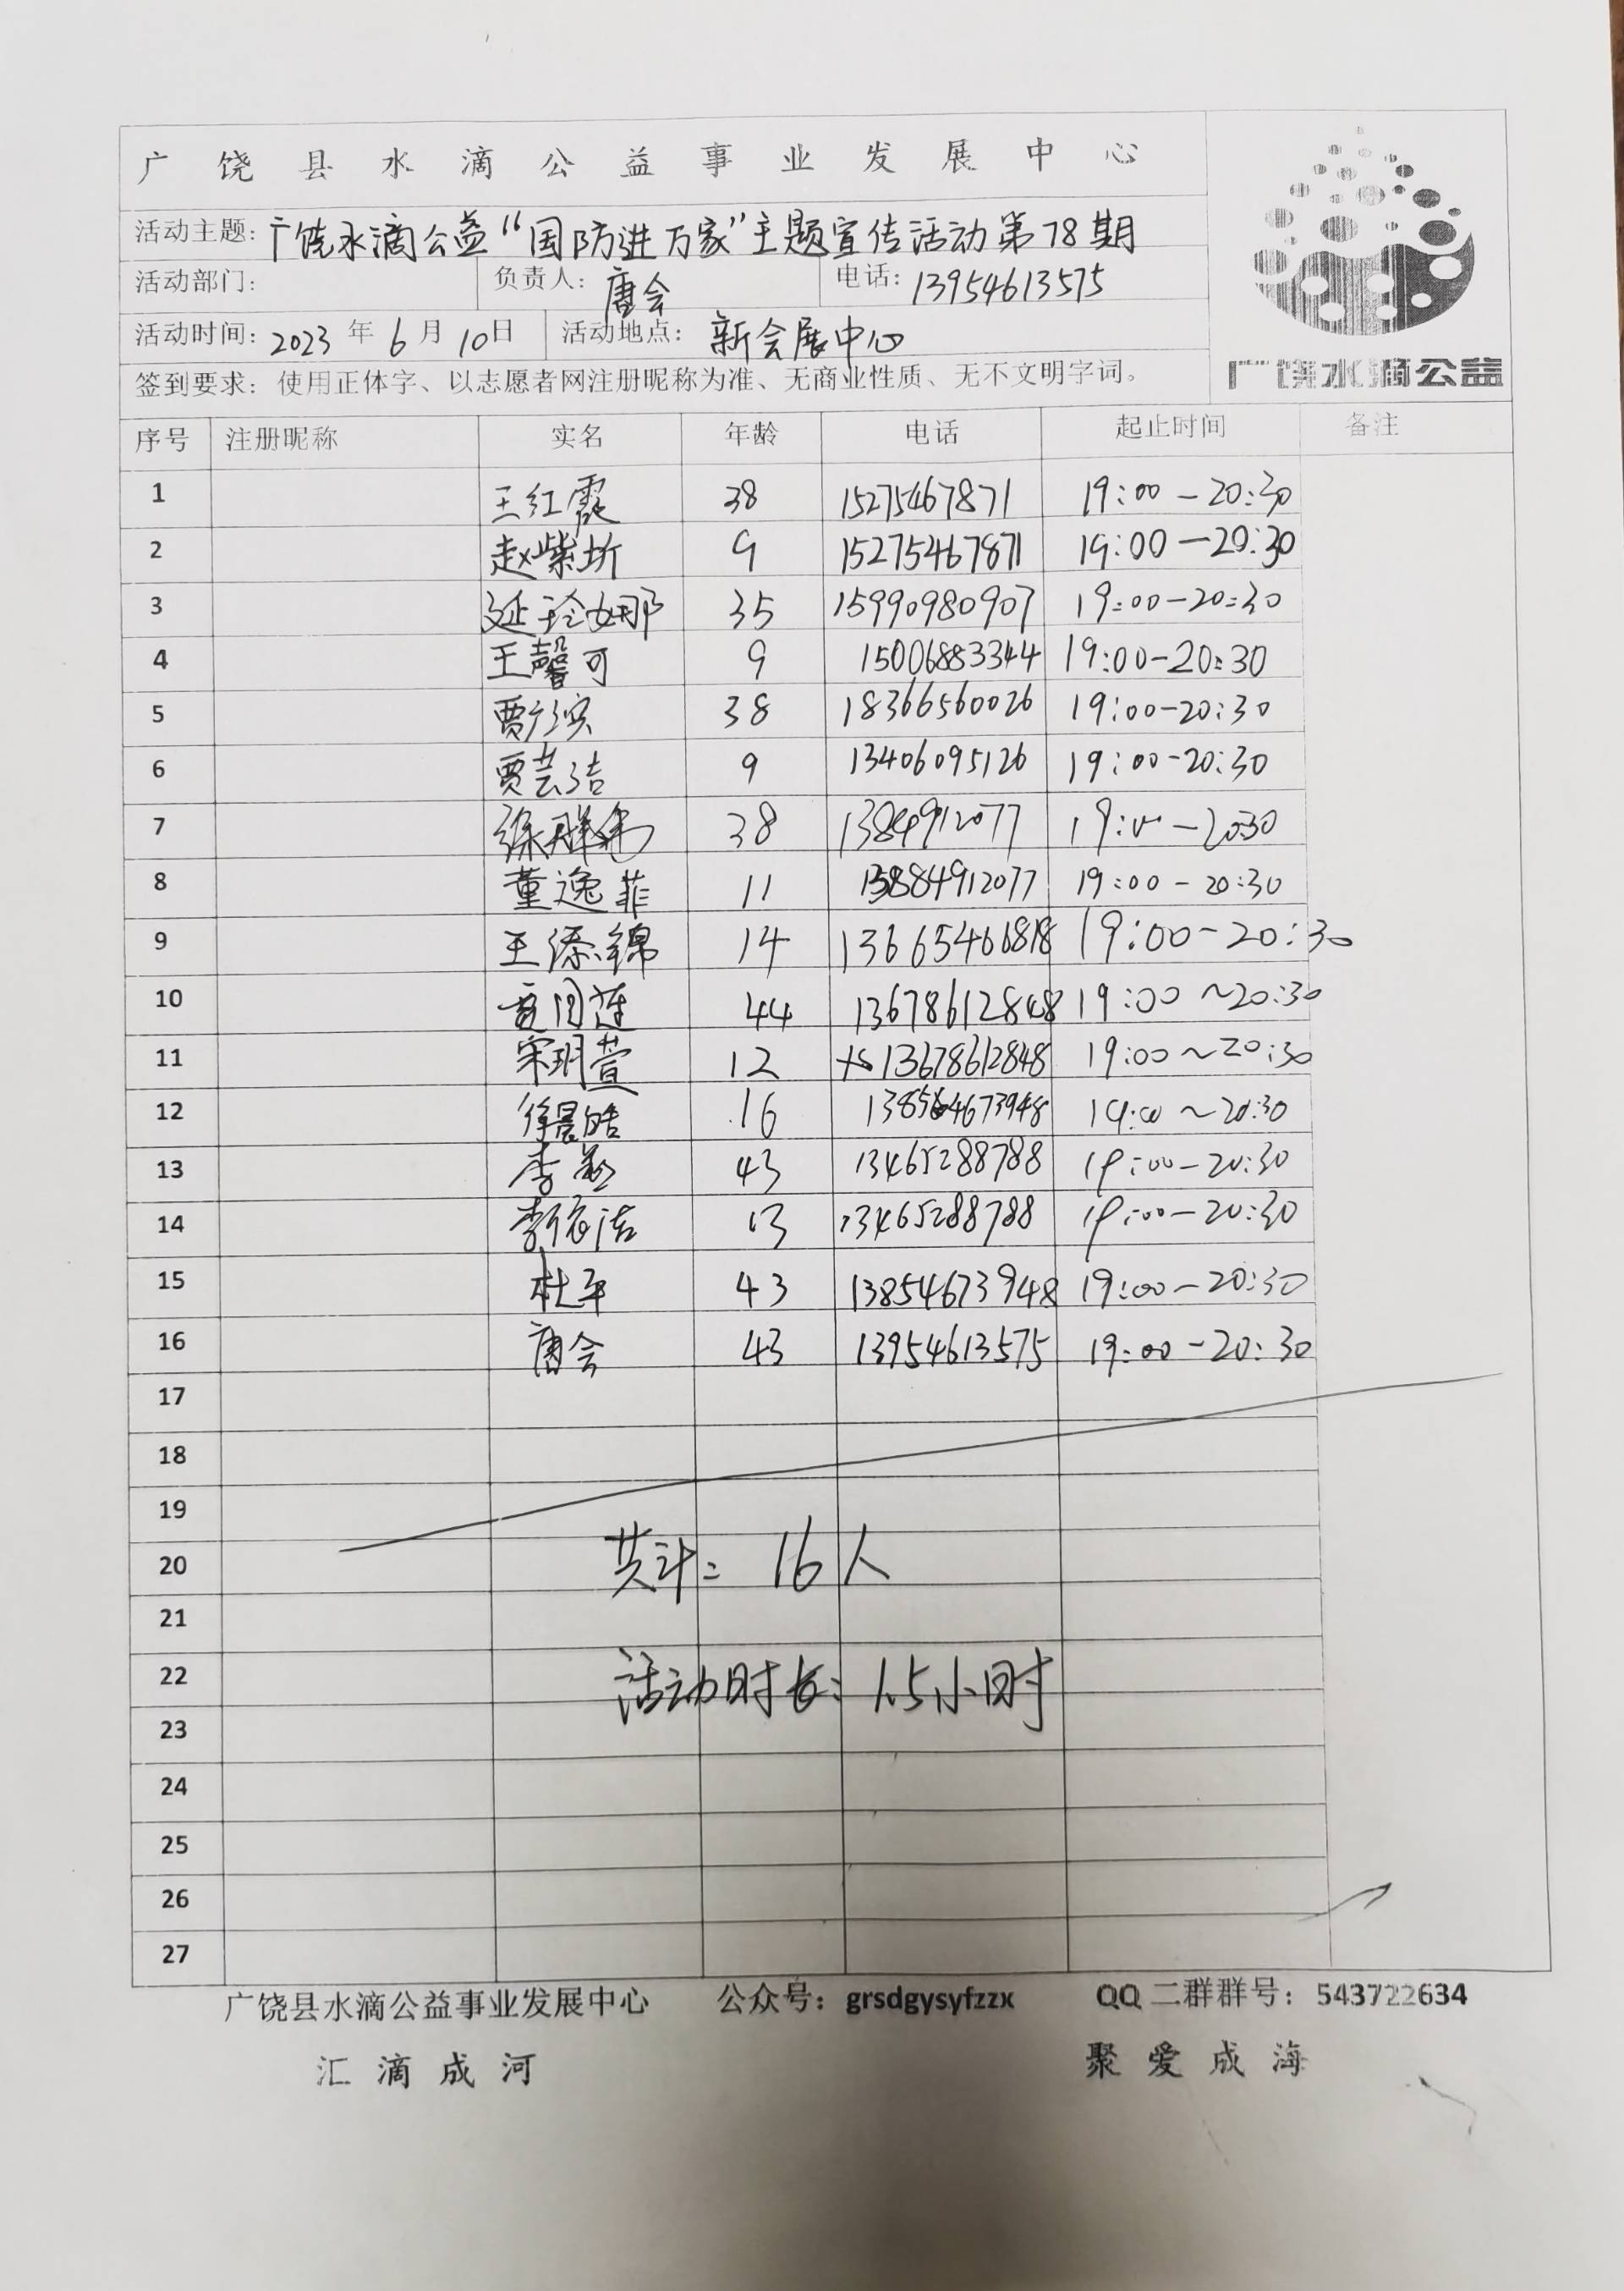 广饶县水滴公益事业发展中心
活动主题：广饶水滴公益“国防进万家”主题宣传活动第78期
活动部门： 负责人：唐会 电话：13954613575
活动时间：2023年6月10日 活动地点：新会展中心
签到要求：使用正体字、以志愿者网注册昵称为准、无商业性质、无不文明字词。
广饶水滴公益
序号 注册昵称 实名 年龄 电话 起止时间 备注
1 王红霞 38 15275467871 19:00-20:30
2 赵紫圻 9 15275467871 19:00-20:30
3 延玲娜 35 15990980907 19:00-20:30
4 王馨可 9 15006883344 19:00-20:30
5 贾 38 18366560026 19:00-20:30
6 贾芸洁 9 13406095126 19:00-20:30
7 徐群 38 1384912077 19:00-20:30
8 董逸菲 11 13884912077 19:00-20:30
9 王添锦 14 19:00-20:30
10 44 13678612848 19:00~20:30
11 宋玥萱 12 13678612848 19:00~20:30
12 徐晨皓 16 19:00~20:30
13 李 43 13465288788 19:00-20:30
14 李依洁 13 13465288788 19:00-20:30
15 杜平 43 13854673948 19:00-20:30
16 唐会 43 13954613575 19:00-20:30
17
18
19
20 共计：16人
21
22 活动时长：1.5小时
23
24
25
26
27
广饶县水滴公益事业发展中心 公众号：grsdgysyfzzx QQ二群群号：543722634
汇滴成河 聚爱成海